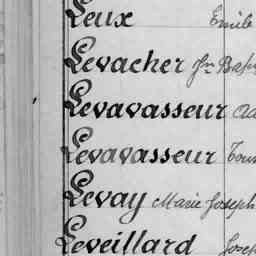 Leux Emile
Levacher Jn Bap
Levavasseur
Levavasseur
Levay Marie Joseph
Leveillard Josep